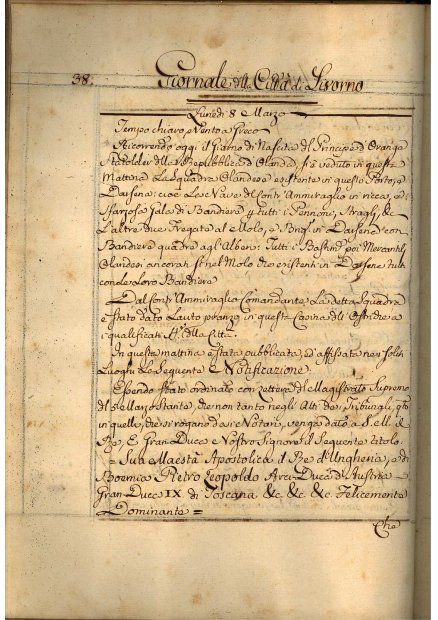 38.
Giornale della Città di Livorno
Lunedì 8 Marzo
Tempo chiaro, e Vento a Greco
Ricorrendo oggi il Giorno di Nascita del Principe d'Oranga
Statolder della Repubblica d'Olanda, si è veduto in questa
Mattina la Squadra Olandese esistente in questo Porto, e
Darsena: cioè la Nave del Contr'Ammiraglio in
sfarzosa Gala di Bandiera tutti i Pennoni, Stragli, &c
L'altre due Fregate al Molo, e in Darsena con
Bandiera quadra agl'Alberi: Tutti i Bastim.ti poi Mercantili
Olandesi ancorati sì nel Molo che esistenti in Darsena tutti
con le loro Bandiere
Dal Contr'Ammiraglio Comandante la detta Squadra
è stato dato lauto pranzo in questa Casina dell' a
i qualificati della Città.
In questa mattina è stata pubblicata, ed affissata nei soliti
Luoghi la seguente Notificazione:
Essendo stato ordinato con lettera del Magistrato Supremo
del 5 Marzo stante, che non tanto negli Atti dei Tribunali, q.to
in quelli, che si rogano dai Notari, venga dato a S. M. il
Re, e Gran Duca Nostro Signore il seguente titolo.
= Sua Maestà Apostolica il Re d'Ungheria, e di
Boemia Pietro Leopoldo Arci-Duca d'Austria
Gran Duca IX di Toscana &c. &c. &c. Felicemente
Dominante =
Che